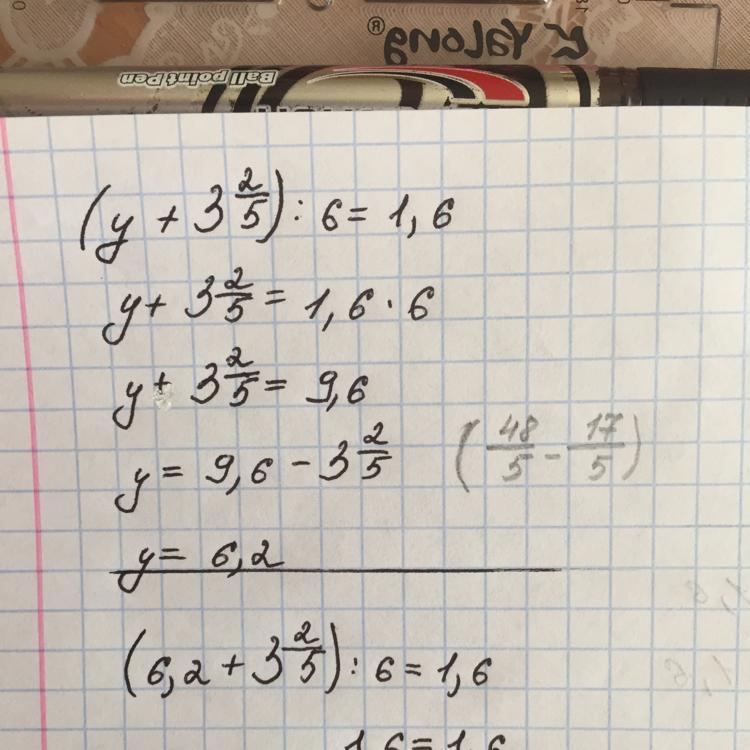 Yalong®
Ball point Pen
(y + 3 2/5) : 6 = 1,6
y + 3 2/5 = 1,6 · 6
y + 3 2/5 = 9,6
y = 9,6 - 3 2/5 (48/5 - 17/5)
y = 6,2
(6,2 + 3 2/5) : 6 = 1,6
1,6 = 1,6